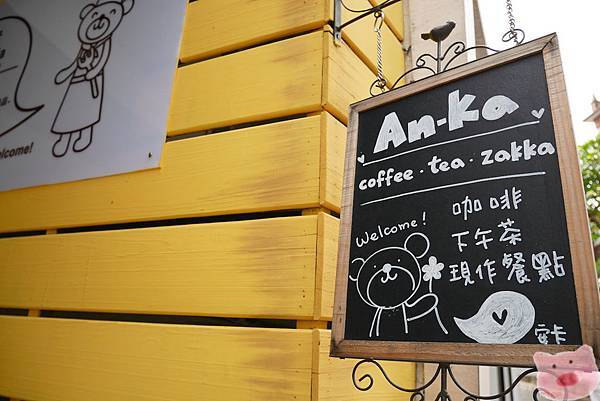 elcome!
An-Ka
coffee · tea · zakka
Welcome!
咖啡
下午茶
現作餐點
安卡